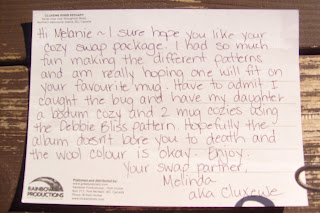 CLUXEWE RIVER ESTUARY
Hi Melanie ~ I sure hope you like your
cozy swap package. I had so much
fun making the different patterns
and am really hoping one will fit on
your favourite mug. Have to admit I
caught the bug and have my daughter
a bodum cozy and 2 mug cozies using
the Debbie Bliss pattern. Hopefully the
album doesn't bore you to death and
the wool colour is okay. Enjoy.
Your swap partner,
Melinda
aka Cluxewe
RAINBOW
PRODUCTIONS